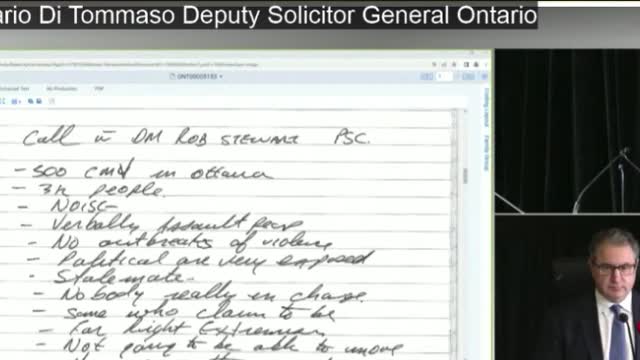 ario Di Tommaso Deputy Solicitor General Ontario
ONT00005153
PDF
Call DM ROB STEWART PSC.
- 500 in Ottawa
- 3k people.
- NOISE
- Verbally Assault
- No outbreaks of violence
- Political are very exposed
- Stalemate
- Nobody really in charge.
- Some who claim to be
- Far Right Extremism
- Not going to be able to move